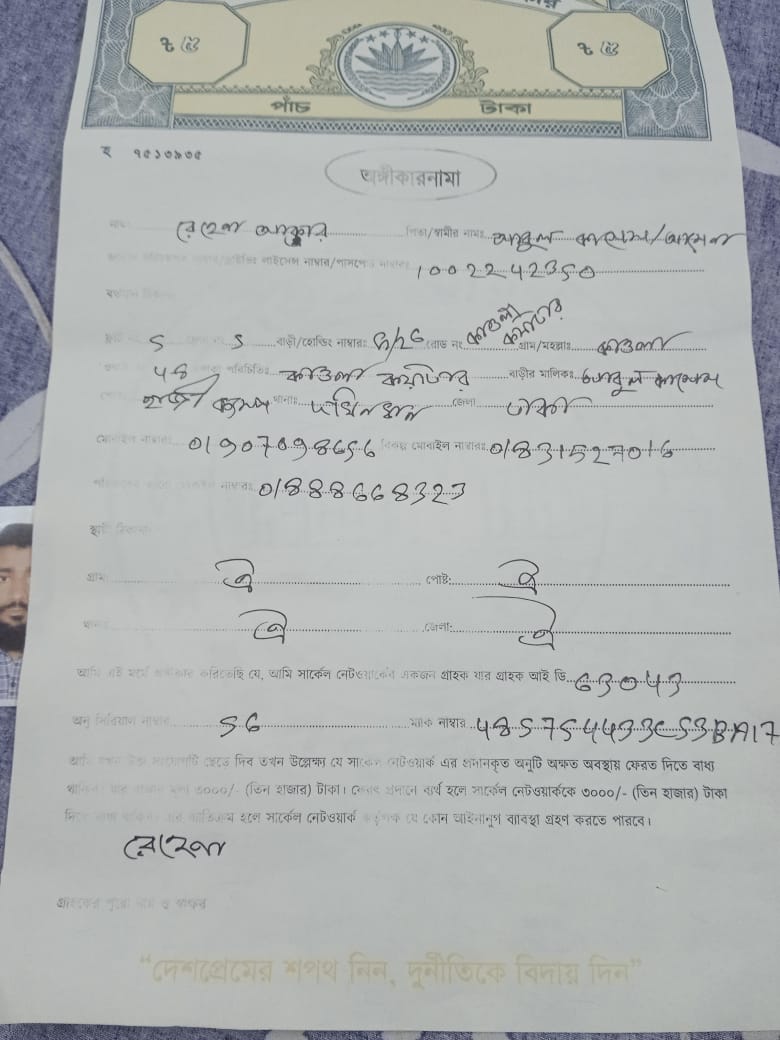 ৳ ৫ ৳ ৫
পাঁচ টাকা
হ ৭৫১৩৯৩৫
অঙ্গীকারনামা
রেহেনা আক্তার পিতা/স্বামীর নামঃ আবুল কাশেম/আমেনা
1002242350
5 5 বাড়ী/হোল্ডিং নাম্বারঃ রোড নং কাওলা গ্রাম/মহল্লাঃ কাওলা
48 কাওলা বাড়ীর মালিকঃ আবুল কাশেম
হাজী থানাঃ দক্ষিনখান জেলা ঢাকা
মোবাইল নাম্বারঃ 01907098656 বিকল্প মোবাইল নাম্বারঃ 01831527016
নাম্বারঃ 01888668323
স্থায়ী ঠিকানা
গ্রামঃ ঐ পোষ্ট: ঐ
ঐ জেলা: ঐ
আমি এই মর্মে অঙ্গীকার করিতেছি যে, আমি সার্কেল নেটওয়ার্কের একজন গ্রাহক যার গ্রাহক আই ডি 63043
অনু সিরিয়াল নাম্বার 56 ম্যাক নাম্বার 485754433C53BA17
ছেড়ে দিব তখন উল্লেক্ষ্য যে সার্কেল নেটওয়ার্ক এর প্রদানকৃত অনুটি অক্ষত অবস্থায় ফেরত দিতে বাধ্য
৩০০০/- (তিন হাজার) টাকা। ফেরত প্রদানে ব্যর্থ হলে সার্কেল নেটওয়ার্ককে ৩০০০/- (তিন হাজার) টাকা
হলে সার্কেল নেটওয়ার্ক কর্তৃপক্ষ যে কোন আইনানুগ ব্যাবস্থা গ্রহণ করতে পারবে।
রেহেনা
গ্রাহকের পুরো নাম ও স্বাক্ষর
“দেশপ্রেমের শপথ নিন, দুর্নীতিকে বিদায় দিন”